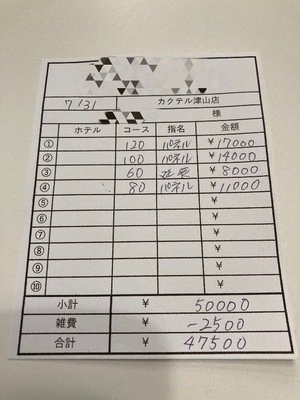 7/31 カクテル津山店
様
ホテル コース 指名 金額
① 120 パネル ¥17000
② 100 パネル ¥14000
③ 60 延長 ¥8000
④ 80 パネル ¥11000
⑤ ¥
⑥ ¥
⑦ ¥
⑧ ¥
⑨ ¥
⑩ ¥
小計 ¥ 50000
雑費 ¥ -2500
合計 ¥ 47500